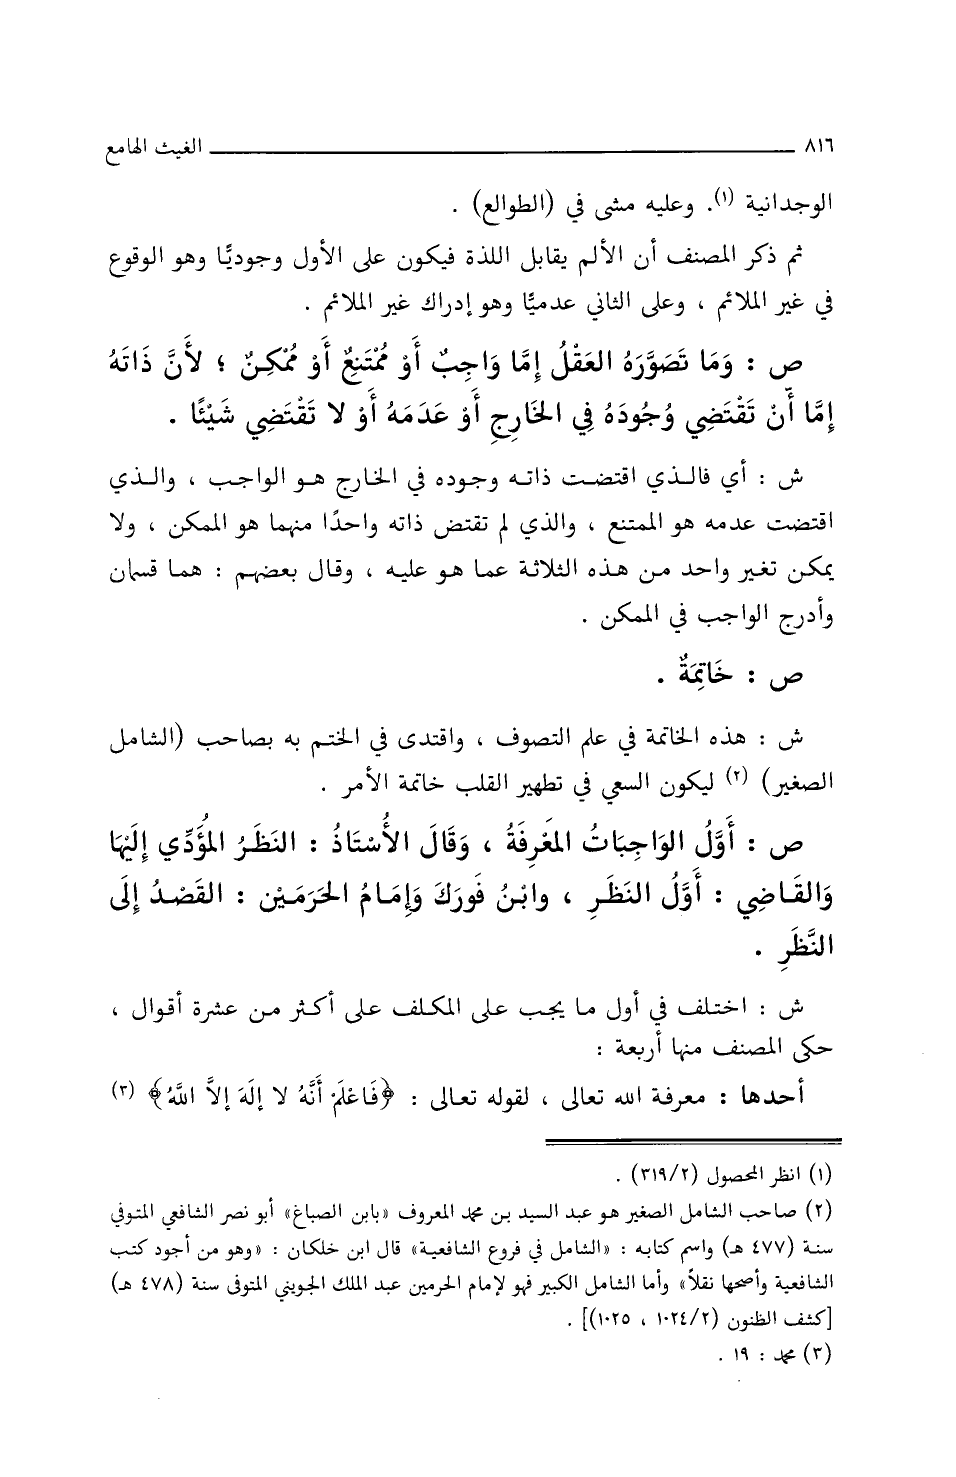 ٨١٦ الغيث الهامع
الوجدانية (١). وعليه مشى في (الطوالع) .
ثم ذكر المصنف أن الألم يقابل اللذة فيكون على الأول وجوديًّا وهو الوقوع
في غير الملائم ، وعلى الثاني عدميًّا وهو إدراك غير الملائم .
ص : وَمَا تَصَوَّرَهُ العَقْلُ إِمَّا وَاجِبٌ أَوْ مُمْتَنِعٌ أَوْ مُمْكِنٌ ؛ لأَنَّ ذَاتَهُ
إِمَّا أَنْ تَقْتَضِي وُجُودَهُ فِي الخَارِجِ أَوْ عَدَمَهُ أَوْ لا تَقْتَضِي شَيْئًا .
ش : أي فالذي اقتضت ذاته وجوده في الخارج هو الواجب ، والذي
اقتضت عدمه هو الممتنع ، والذي لم تقتض ذاته واحدًا منهما هو الممكن ، ولا
يمكن تغير واحد من هذه الثلاثة عما هو عليه ، وقال بعضهم : هما قسمان
وأدرج الواجب في الممكن .
ص : خَاتِمَةٌ .
ش : هذه الخاتمة في علم التصوف ، واقتدى في الختم به بصاحب (الشامل
الصغير) (٢) ليكون السعي في تطهير القلب خاتمة الأمر .
ص : أَوَّلُ الوَاجِبَاتُ المَعْرِفَةُ ، وَقَالَ الأُسْتَاذُ : النَظَرُ المُؤَدِّي إِلَيْهَا
وَالقَاضِي : أَوَّلُ النَظَرِ ، وابْنُ فَورَكَ وَإِمَامُ الحَرَمَيْنِ : القَصْدُ إِلَى
النَّظَرِ .
ش : اختلف في أول ما يجب على المكلف على أكثر من عشرة أقوال ،
حكى المصنف منها أربعة :
أحدها : معرفة الله تعالى ، لقوله تعالى : ﴿فَاعْلَمْ أَنَّهُ لا إِلَهَ إلاَّ اللَّهُ﴾ (٣)
(١) انظر المحصول (٣١٩/٢) .
(٢) صاحب الشامل الصغير هو عبد السيد بن محمد المعروف «بابن الصباغ» أبو نصر الشافعي المتوفي
سنة (٤٧٧ هـ) واسم كتابه : «الشامل في فروع الشافعية» قال ابن خلكان : «وهو من أجود كتب
الشافعية وأصحها نقلاً» وأما الشامل الكبير فهو لإمام الحرمين عبد الملك الجويني المتوفى سنة (٤٧٨ هـ)
[كشف الظنون (١٠٢٤/٢ ، ١٠٢٥)] .
(٣) محمد : ١٩ .